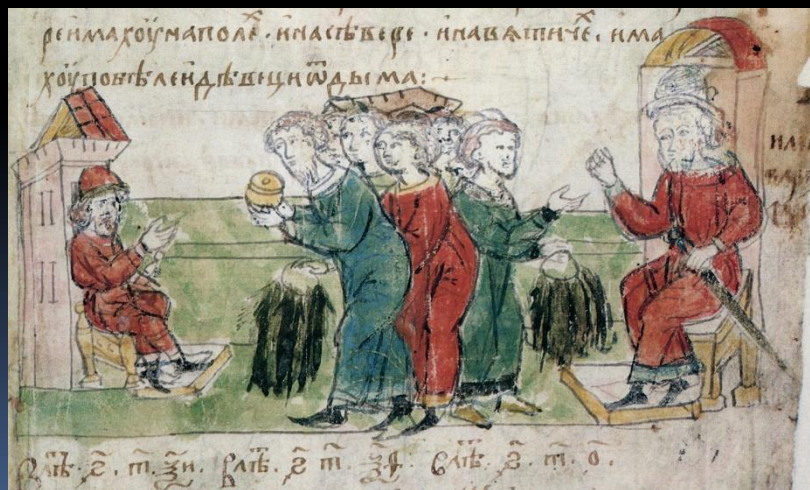 реимахоунаполеⷯ · инасѣвере · инавѧтичеⷯ · има
хоупобѣлеидѣвеци ѿдыма:
Влѣⷮ · ҂ѕ҃ · т҃ · ѯ҃и · Влѣⷮ · ҂ѕ҃ т҃ · ѯ҃ѳ · Влѣⷮ · ҂ѕ҃ · т҃ · о҃ ·